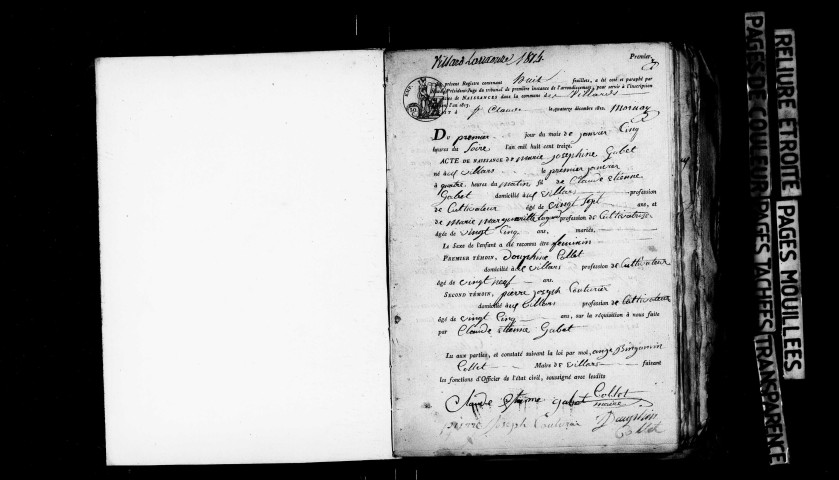 1814
Premier
présent Registre contenant huit feuillets, a été coté et paraphé par
Président-Juge du tribunal de première instance de l'arrondissement, pour servir à l'inscription
de NAISSANCES dans la commune des Villards
l'an 1813.
FAIT A St Claude le quatorze décembre 1812. Monnay
Du premier jour du mois de janvier Cinq
heures du Soire l'an mil huit cent treize
ACTE DE NAISSANCE de marie josephine Gabet
né aux villars le premier janvier
à quatre heures du matin fil de Claude étienne
Gabet domicilié aux villars profession
de Cultivateur âgé de vingt sept ans, et
de marie margueritte profession de Cultivatrice
âgée de vingt Cinq ans, mariés,
Le Sexe de l'enfant a été reconnu être feminin
PREMIER TÉMOIN, Dauphine Collet
domicilié aux villars profession de Cultivateur
âgé de vingt neuf ans.
SECOND TÉMOIN, pierre joseph Couturier
domicilié aux villars profession de Cultivateur
âgé de vingt Cinq ans, sur la réquisition à nous faite
par Claude étienne Gabet
Lu aux parties, et constaté suivant la loi par moi, ange Binjamin
Collet Maire de villars faisant
les fonctions d'Officier de l'état civil, soussigné avec lesdits
Claude étienne gabet Collet
maire
pierre joseph Couturier Dauphin
Collet
RELIURE ETROITE PAGES MOUILLEES
PAGES DE COULEUR PAGES TACHEES TRANSPARENCE